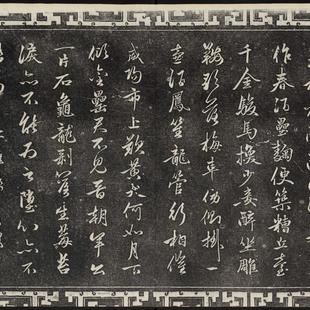 作春酒壘麹便築糟丘臺
千金駿馬換少妾醉坐雕
鞍歌落梅車傍側掛一
壺酒鳳笙龍管行相催
咸陽市上歎黃犬何如月下
傾金罍君不見晉朝羊公
一片石龜龍剝落生莓苔
淚亦不能為之墮心亦不